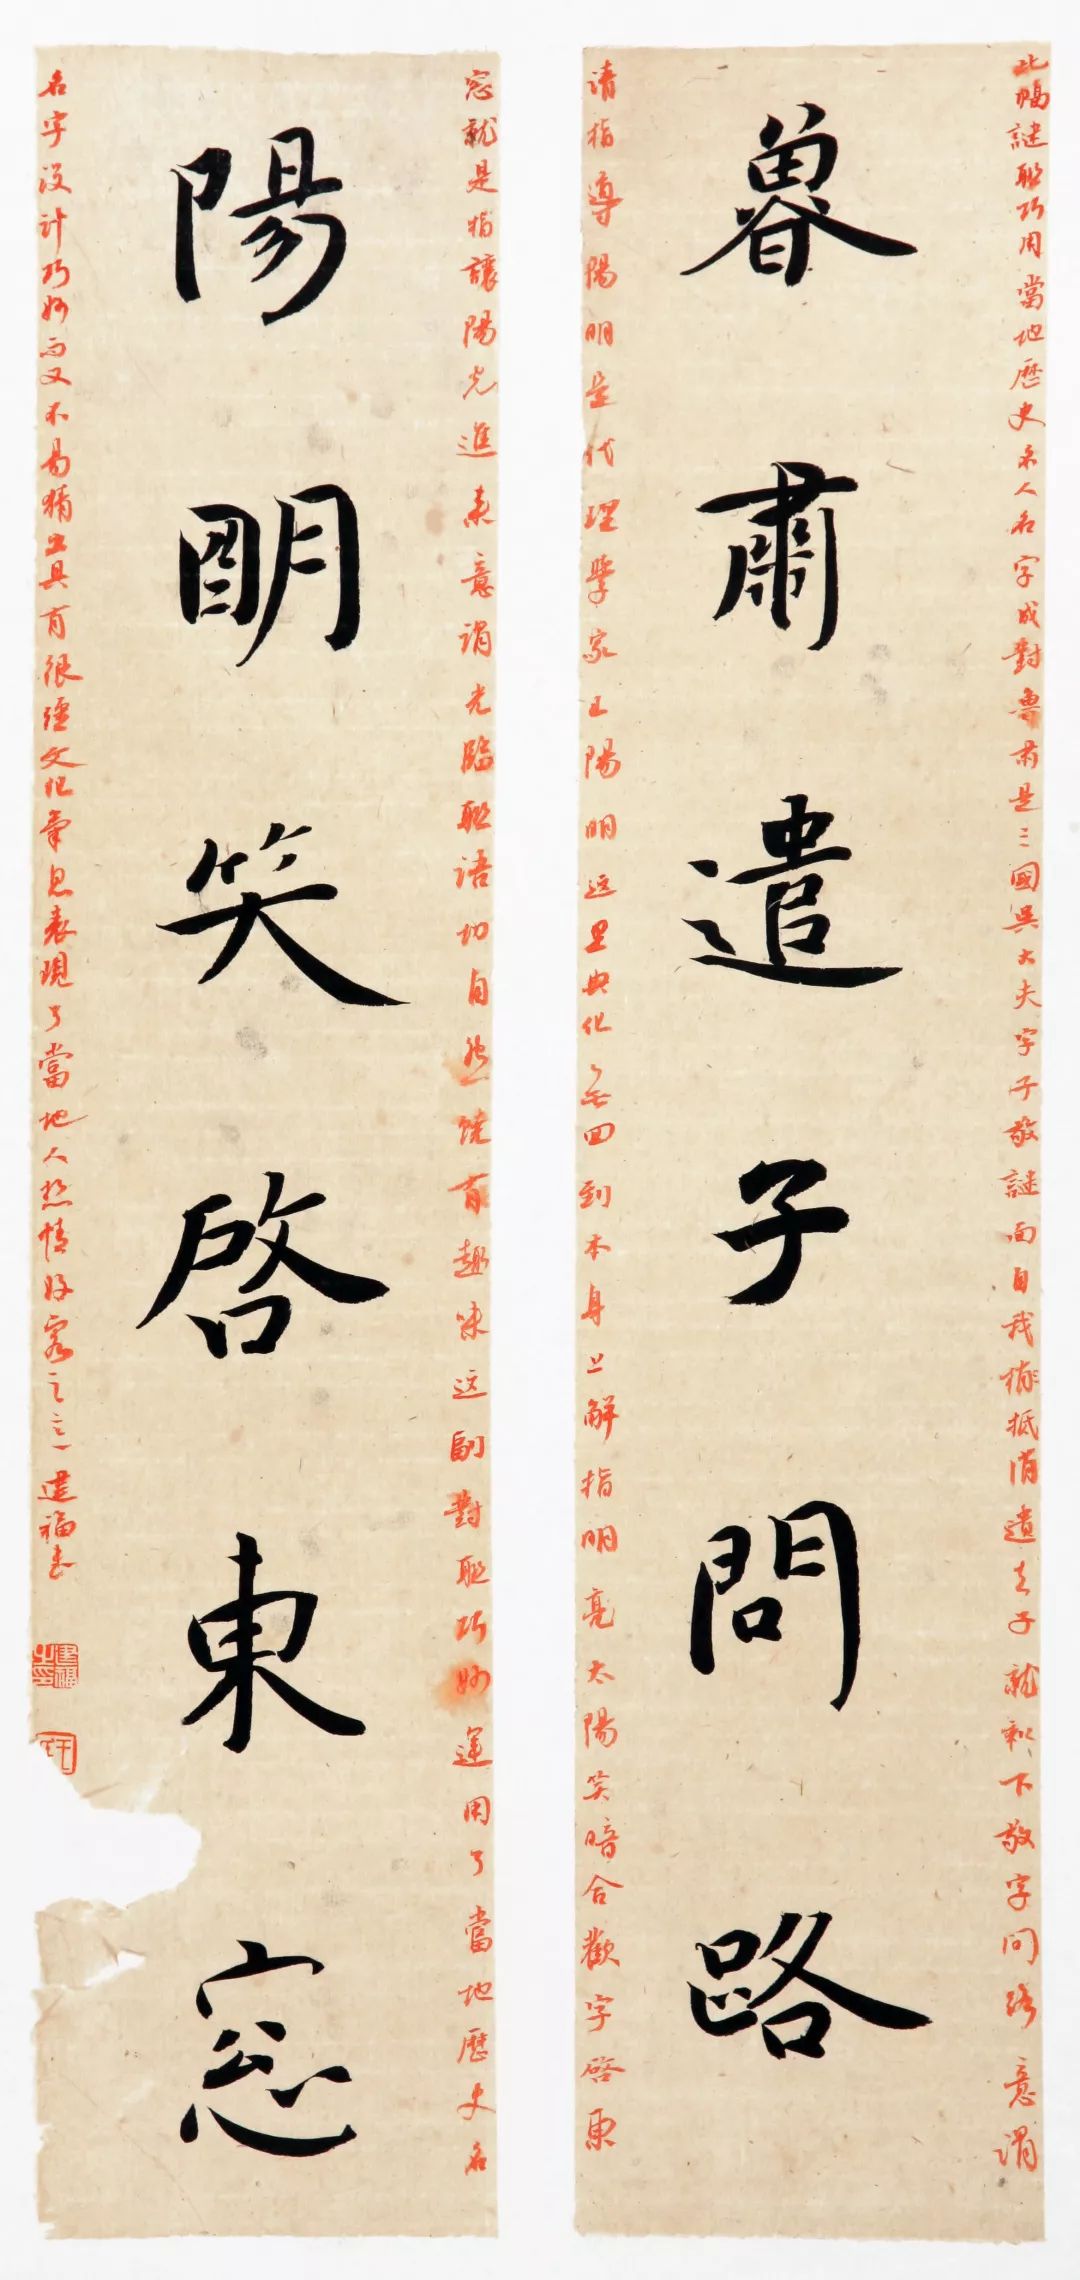 此幅謎聯巧用當地歷史名人名字成對魯肅是三國吳大夫字子敬謎面自我梅抵消遣去子就剩下敬字问路意謂
魯肅遣子問路
请指導陽明是代理學家王陽明这里典化為回到本身上解指明亮太陽笑暗合歡字啓東
窓就是指讓陽光進来意謂光臨聯语切自然饒有趣味这副對聯巧妙運用了當地歷史名
陽明笑啓東窓
名字设计巧妙而又不易猜出具有很强文化氣息表現了當地人热情好客之意 建福書